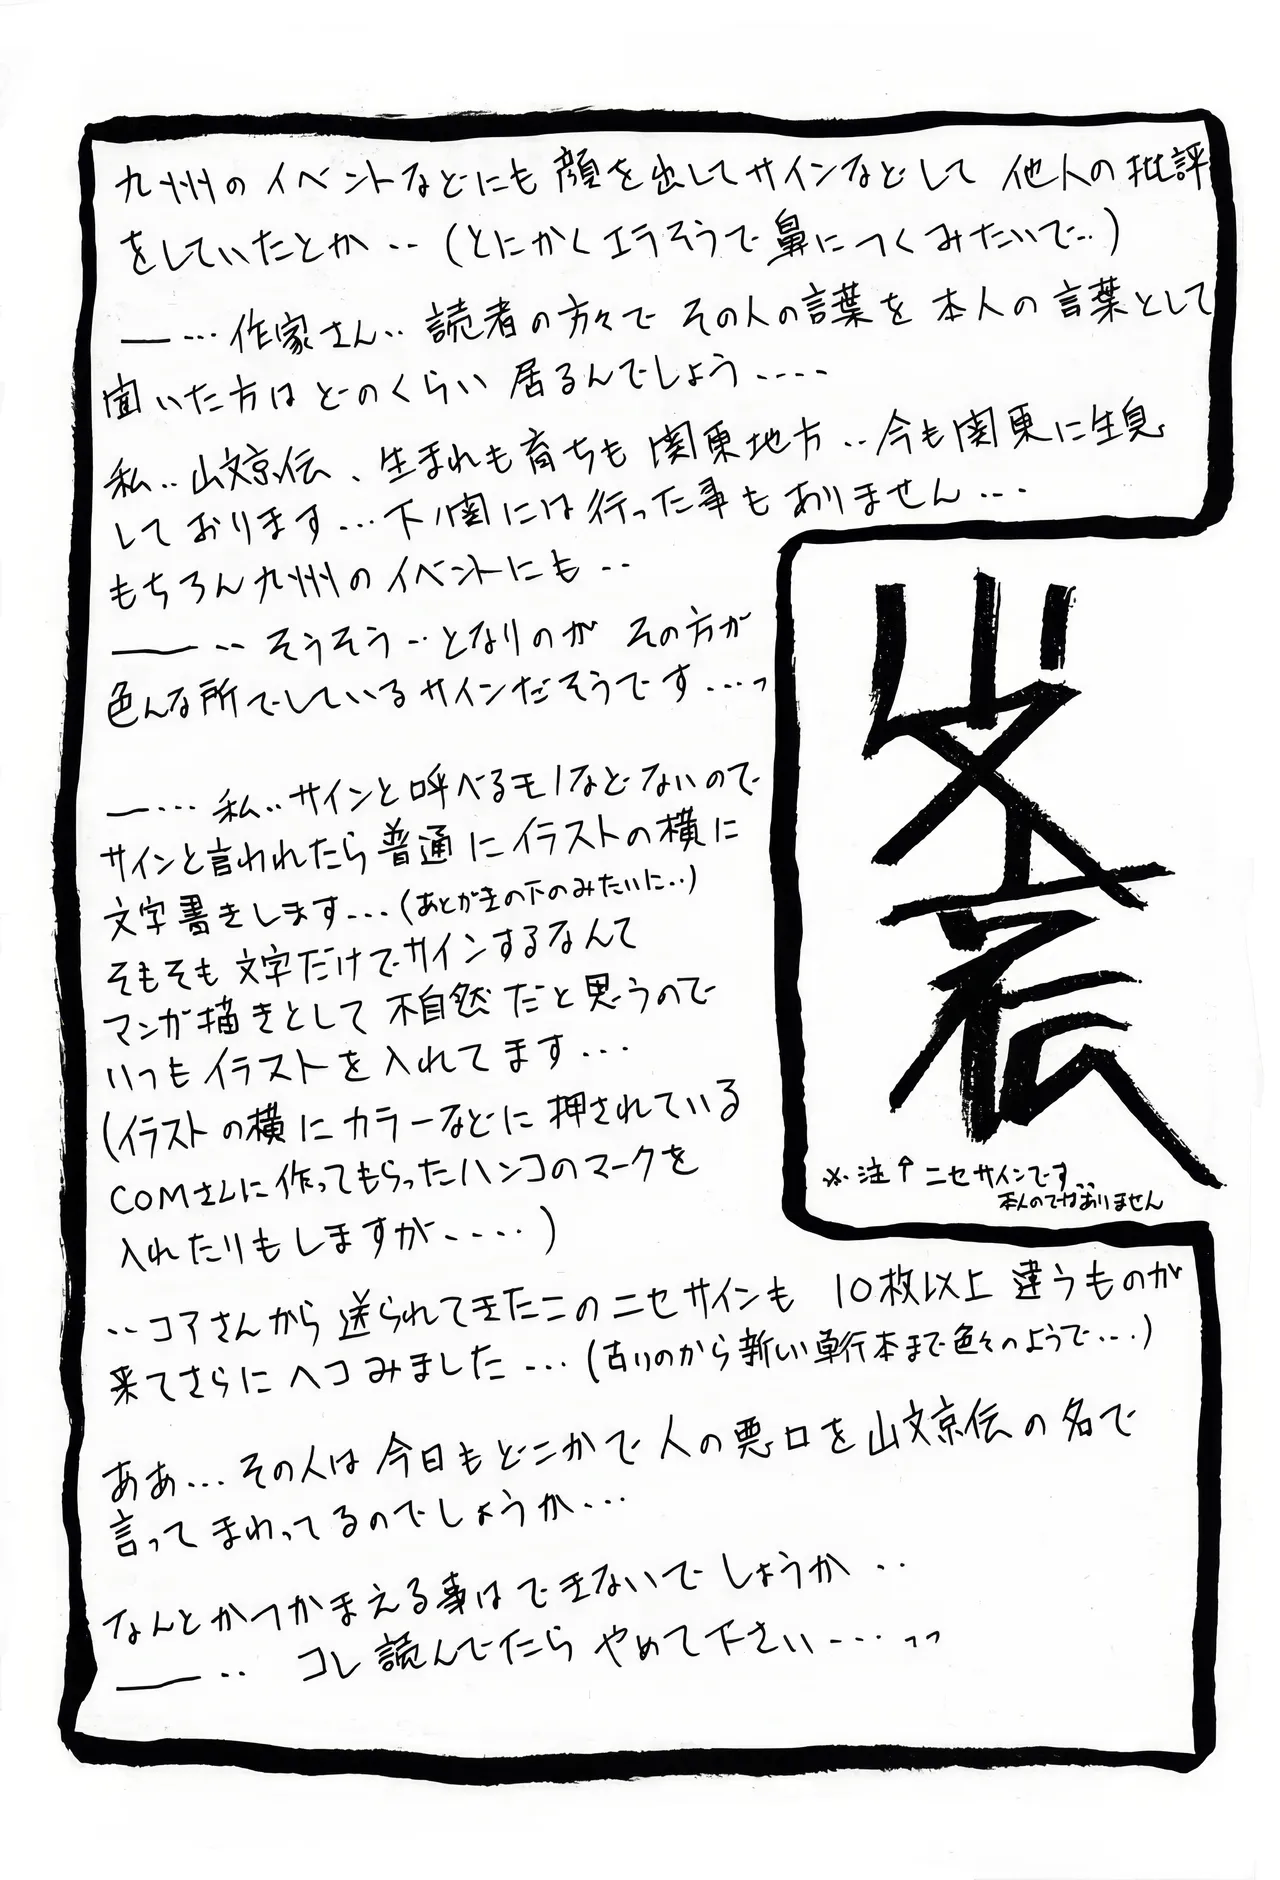 九州のイベントなどにも顔を出してサインなどして 他人の批評
をしていたとか‥(とにかくエラそうで鼻につくみたいで‥)
―…作家さん‥読者の方々で その人の言葉を 本人の言葉として
聞いた方はどのくらい居るんでしょう‥‥
私‥山文京伝、生まれも育ちも関東地方‥今も関東に生息
しております…下ノ関には行った事もありません…
もちろん九州のイベントにも‥
―‥そうそう‥となりのが その方が
色んな所でしているサインだそうです…っ
―…私‥サインと呼べるモノなどないので
サインと言われたら普通にイラストの横に
文字書きします…(あとがきの下のみたいに‥)
そもそも文字だけでサインするなんて
マンガ描きとして不自然だと思うので
いつもイラストを入れてます…
(イラストの横にカラーなどに押されている
COMさんに作ってもらったハンコのマークを
入れたりもしますが‥‥)
山文京伝
※注↑ニセサインです‥
本人のではありません
‥コアさんから送られてきたこのニセサインも 10枚以上違うものが
来てさらにヘコみました…(古いのから新しい単行本まで色々のようで…)
ああ…その人は今日もどこかで人の悪口を山文京伝の名で
言ってまわってるのでしょうか…
なんとかつかまえる事はできないでしょうか‥
―‥ コレ読んでたらやめて下さい…っっ